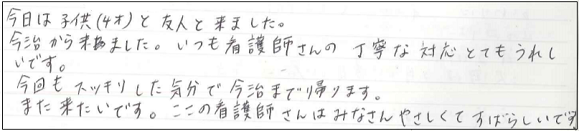 今日は子供(4才)と友人と来ました。
今治から来ました。いつも看護師さんの丁寧な対応とてもうれし
いです。
今回もスッキリした気分で今治まで帰ります。
また来たいです。ここの看護師さんはみなさんやさしくてすばらしいです